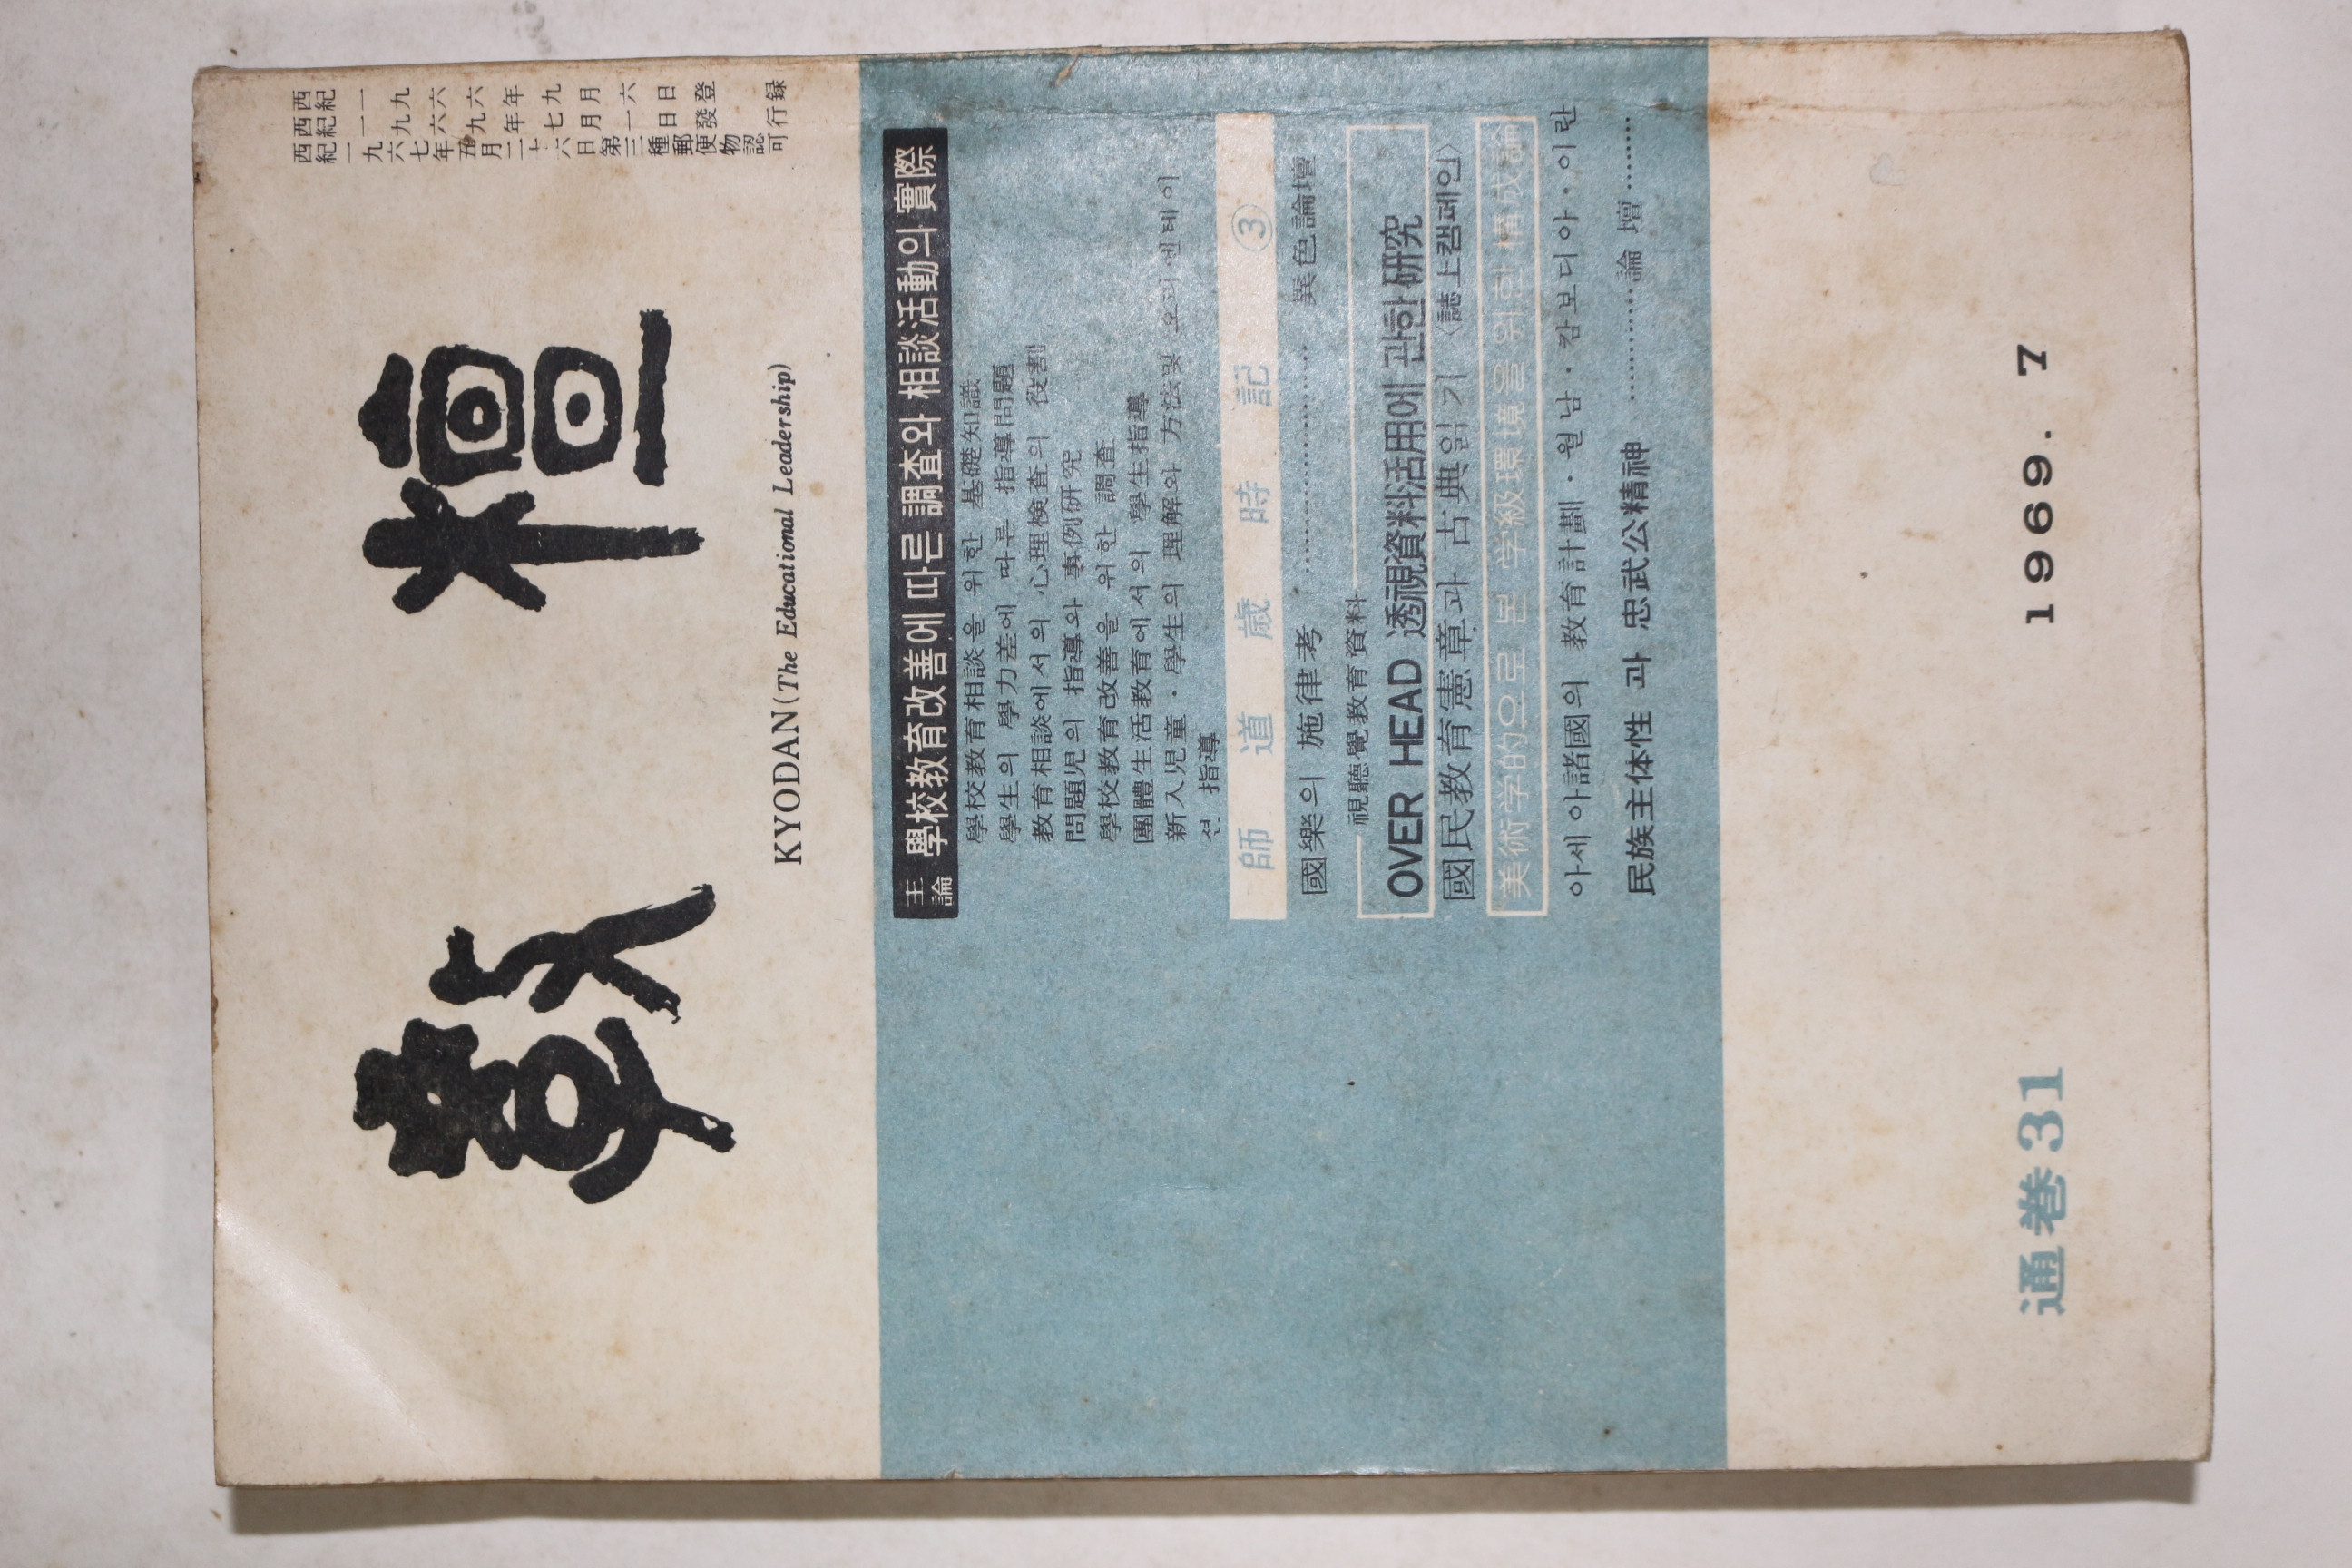 西紀一九六六年九月六日登録
西紀一九六九年七月一日發行
西紀一九六七年五月二十六日第三種郵便物認可
敎壇
KYODAN(The Educational Leadership)
主論 學校敎育改善에 따른 調査와 相談活動의 實際
學校敎育相談을 위한 基礎知識
學生의 學力差에 따른 指導問題
敎育相談에서의 心理検査의 役割
問題児의 指導와 事例研究
學校敎育改善을 위한 調査
團體生活敎育에서의 學生指導
新入児童・學生의 理解와 方法및 오리엔테이
션 指導
師道歲時記 ③
國樂의 施律考 ………………… 異色論壇
視聽覺敎育資料
OVER HEAD 透視資料活用에 관한 研究
國民敎育憲章과 古典읽기 〈誌上캠페인〉
美術学的으로 본 学級環境을 위한 構成論
아세아諸國의 敎育計劃・월남・캄보디아・이란
民族主体性 과 忠武公精神 …………論 壇………
1969. 7
通巻31